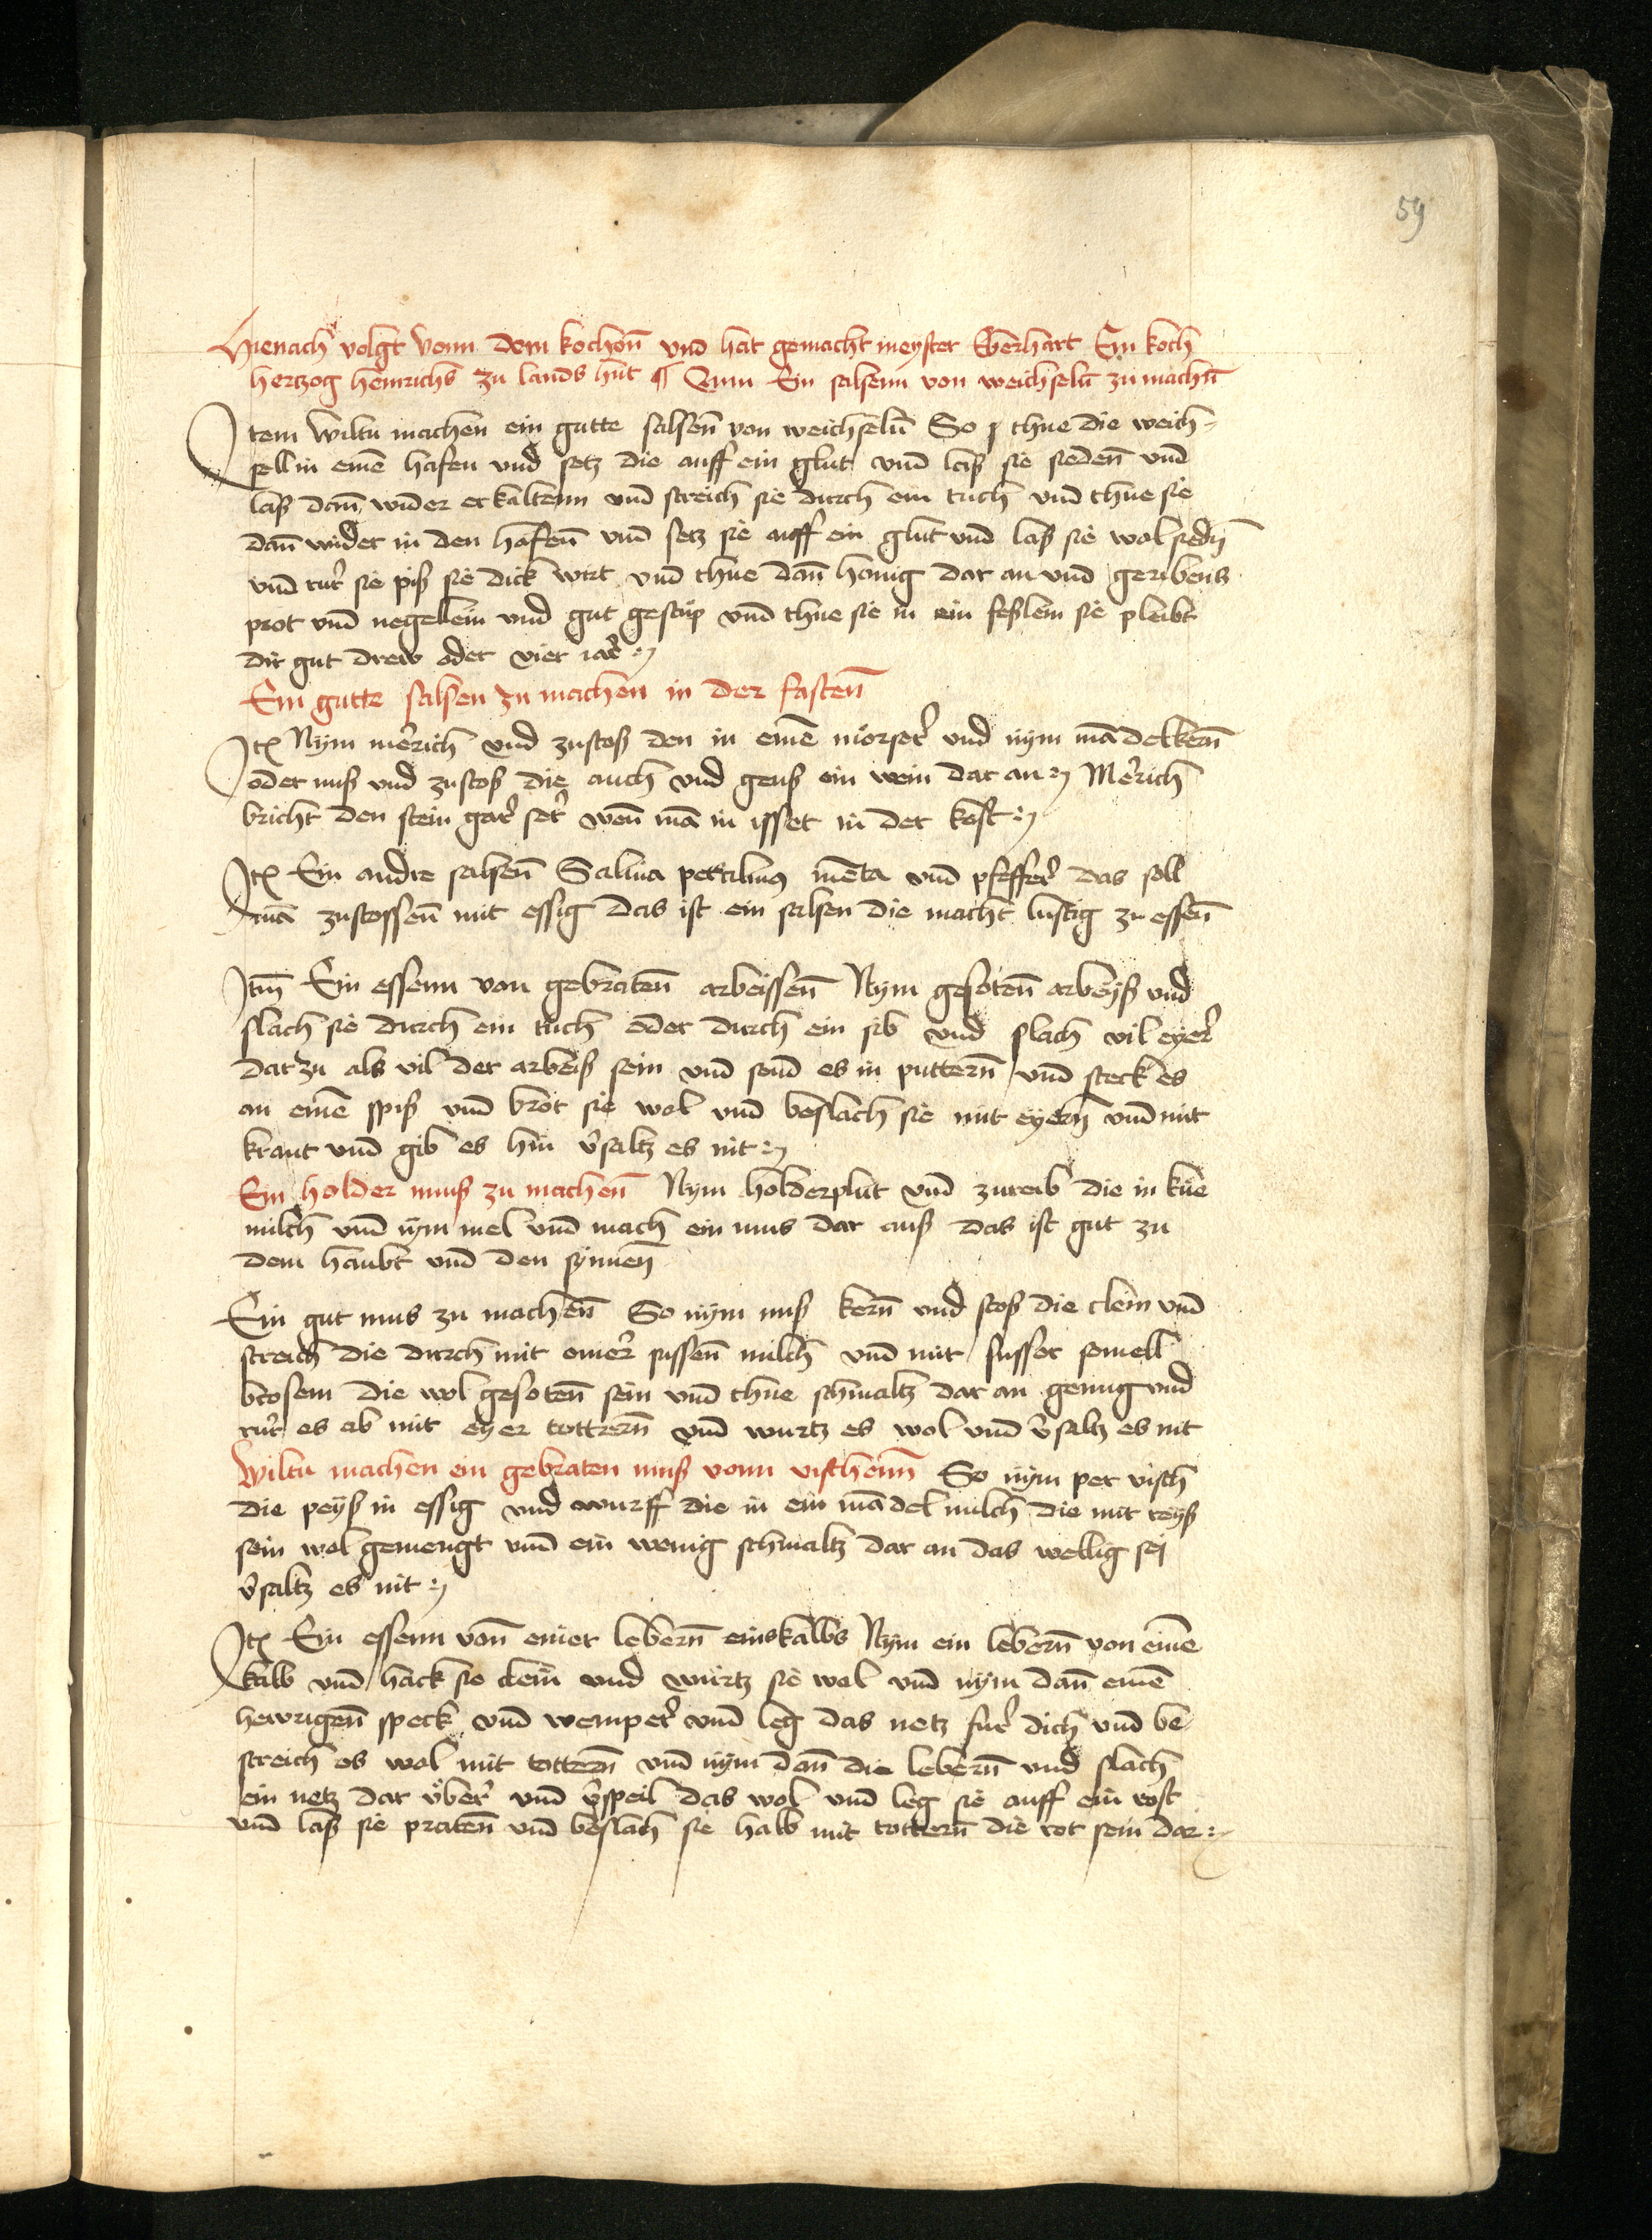 59
Hienach volgt vonn dem kochen̄ vnd hat gemacht meyster Eberhart Ein koch
hertzog heinrichs zu lands hut ¶ Zum Ein salsenn von weichseln̄ zu machn̄
Item wiltu machen ein gutte salsen̄ von weichseln̄ So thue die weich-
sell in eine͂ hafen vnd setz die auff ein glut vnd laß sie sieden̄ vnd
laß dan̄ wider erkaltenn vnd streich sie durch ein tuch vnd thue sie
dan̄ wider in den hafen̄ vnd setz sie auff ein glut vnd laß sie wol siedn̄
vnd rur sie piß sie dick wirt vnd thue dan̄ honig dar an vnd geribens
prot vnd negellein vnd gut gestüp vnd thue sie in ein feßlein sie pleibt
dir gut drew oder vier iar
Ein gutte salsen zu machen in der fasten̄
Itē Nym merich vnd zustoß den in eine͂ mörser vnd nym mā delkern̄
oder nuß vnd zustoß die auch vnd geuß ein wein dar an Merich
bricht den stein gar ser wen̄ mā in isset in der kost
Itē Ein andre salsen̄ Saluia petrilius mēta vnd pfeffer das soll
mā zustossen̄ mit essig das ist ein salsen die macht lustig zu essen̄
Itm̄ Ein essenn von gebraten̄ arbeissen̄ Nym gesoten̄ arbeyß vnd
slach sie durch ein tuch oder durch ein sib vnd slach vil eyer
dar zu als vil der arbeiß sein vnd seud es in puttern̄ vnd steck es
an eine͂ spiß vnd brot sie wol vnd beslach sie mit eyern̄ vnd mit
kraut vnd gib es hin v̄saltz es nit
Ein holder muß zu machen̄ Nym holderplut vnd zureib die in küe
milch vnd nym mel vnd mach ein mus dar auß das ist gut zu
dem haubt vnd den synnen̄
Ein gut mus zu machen̄ So nym nuß kern̄ vnd stoß die clein vnd
streich die durch mit einer sussen̄ milch vnd mit susser semell
brosem die wol gesoten̄ sein vnd thue schmaltz dar an genug vnd
rur es ab mit eyer tottern̄ vnd wurtz es wol vnd v̄saltz es nit
Wiltu machen ein gebraten muß vonn vischenn̄ So nym per visch
die peyß in essig vnd wurff die in ein mā del milch die mit reyß
sein wol gemengt vnd ein wenig schmaltz dar an das wellig sej
v̄saltz es nit
Itē Ein essenn von̄ einer lebern̄ einskalbs Nym ein lebern̄ von eine͂
kalb vnd hack sie clein vnd würtz sie wol vnd nym dan̄ eine͂
hewrigen̄ speck vnd wemper vnd leg das netz fur dich vnd be
streich es wol mit tottern̄ vnd nym dan̄ die lebern̄ vnd slach
ein netz dar über vnd v̄speil das wol vnd leg sie auff ein rost
vnd laß sie praten̄ vnd beslach sie halb mit tottern̄ die rot sein dar